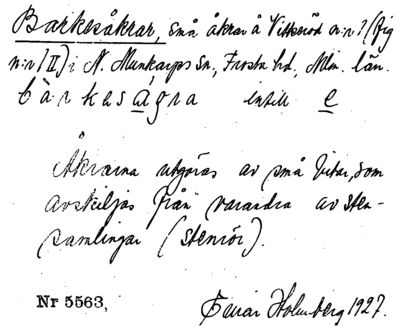 Barkesåkrar, små åkrar å Vitseröd n:r 1 (fig
n:r II) i N. Munkarps sn, Frosta hd, Mlm. län.
bàrkesągra intill e
Åkrarna utgöras av små bitar, som
avskiljas från varandra av sten-
samlingar (stenrör).
Nr 5563,
Einar Holmberg 1927.